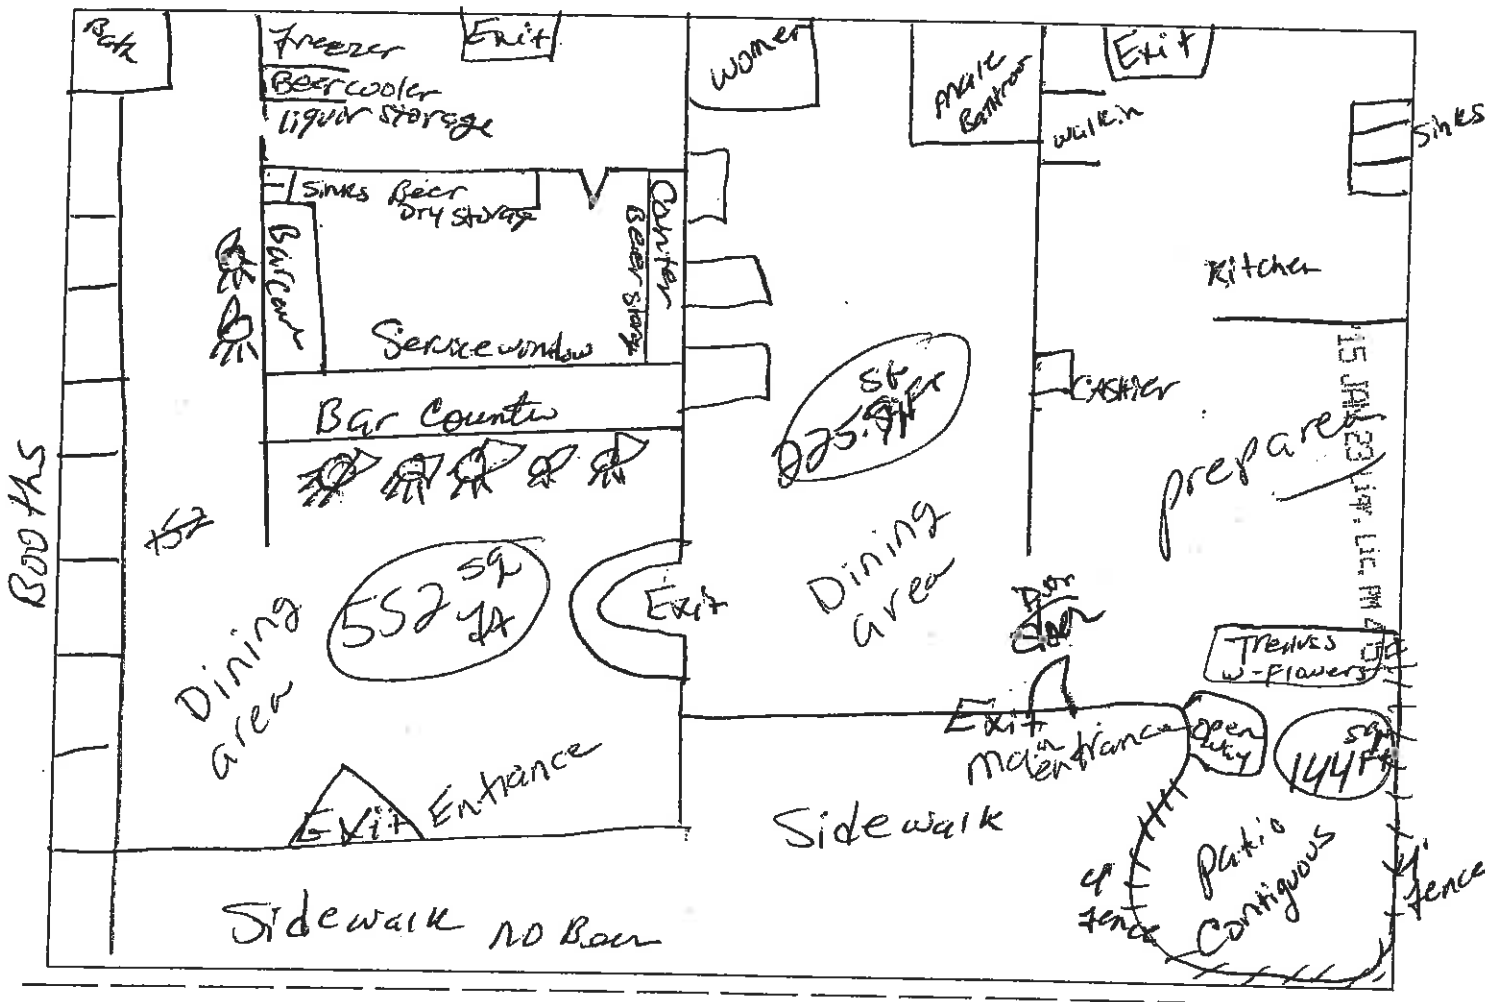 Bath
Freezer
Exit
Beer cooler
liquor storage
women
male
Bathroom
Exit
walkin
Sinks
Sinks Beer
Dry storage
Counter
Beer storag
Bar Coun
Service window
Kitchen
Bar Counter
sq
225.
CASHIER
prep area
15 JAN 23 Liq. Lic. PM 4:15
Booths
152
552 sq
ft
Exit
Dining
area
Dining
area
Door
Trelliss
w-Flowers
Exit
main
entrance
open
way
144 sq
Ft
Exit
Entrance
Sidewalk
4'
fence
patio
Contiguous
4'
fence
Sidewalk NO Beer